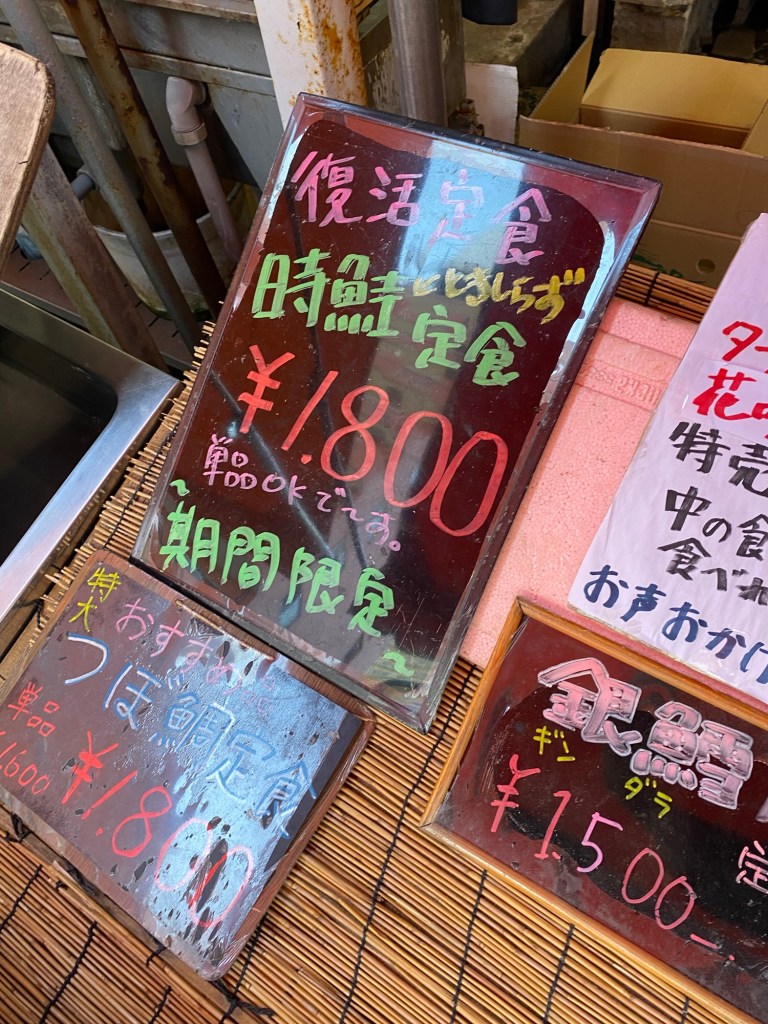 復活定食
時鮭ととぎしらず
定食
¥1.800
単品OKです。
~期間限定~
特大
おすすめ
つぼ鯛定食
単品
¥1600
¥1.800
銀鱈
ギン ダラ
¥1.500-
定
特売
中の食
食べれ
お声おかけ